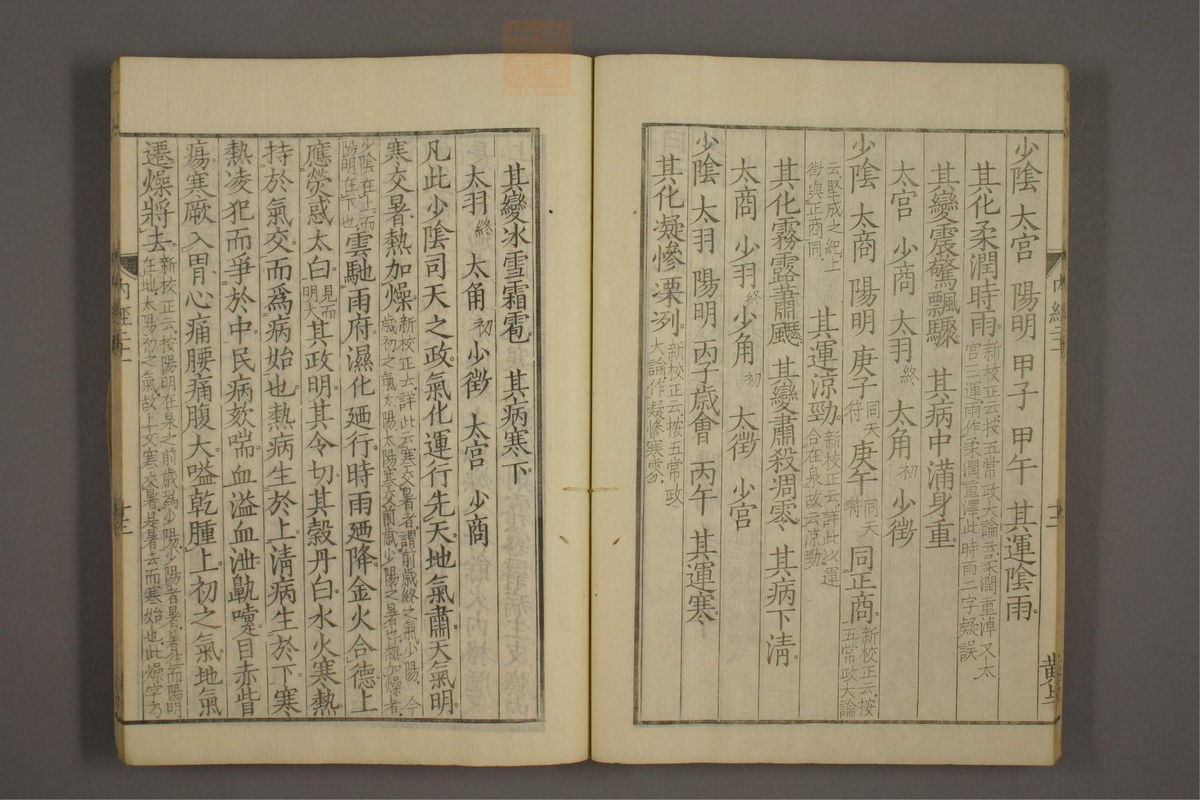 少陰 太宫 陽明 甲子 甲午 其運陰雨
其化柔潤時雨新校正云按五常政大論云柔潤重淖又太宫三運雨作柔潤重澤此時雨二字疑誤
其變震驚飄驟 其病中滿身重
太宫 少商 太羽終 太角初 少徵
少陰 太商 陽明 庚子同天符 庚午同天符 同正商新校正云按五常政大論云堅成之紀上徵與正商同
其運涼勁新校正云詳此以運合在泉故云涼勁
其化霧露蕭飋 其變肅殺凋零 其病下清
太商 少羽終 少角初 太徵 少宫
少陰 太羽 陽明 丙子歲會 丙午 其運寒
其化凝慘凓冽新校正云按五常政大論作凝慘寒雰
其變冰雪霜雹 其病寒下
太羽終 太角初 少徵 太宫 少商
凡此少陰司天之政氣化運行先天地氣肅天氣明
寒交暑熱加燥新校正云詳此云寒交暑者謂前歲終之氣少陽今歲初之氣太陽太陽寒交前歲少陽之暑也熱加燥者
少陰在上而陽明在下也雲馳雨府濕化廼行時雨廼降金火合德上
應熒惑太白見而明大其政明其令切其穀丹白水火寒熱
持於氣交而爲病始也熱病生於上清病生於下寒
熱凌犯而爭於中民病欬喘血溢血泄鼽嚏目赤眥
瘍寒厥入胃心痛腰痛腹大嗌乾腫上初之氣地氣
遷燥將去新校正云按陽明在泉之前歲爲少陽少陽者暑暑往而陽明在地太陽初之氣故上文寒交暑是暑去而寒始也此燥字乃
內經二十一
十三